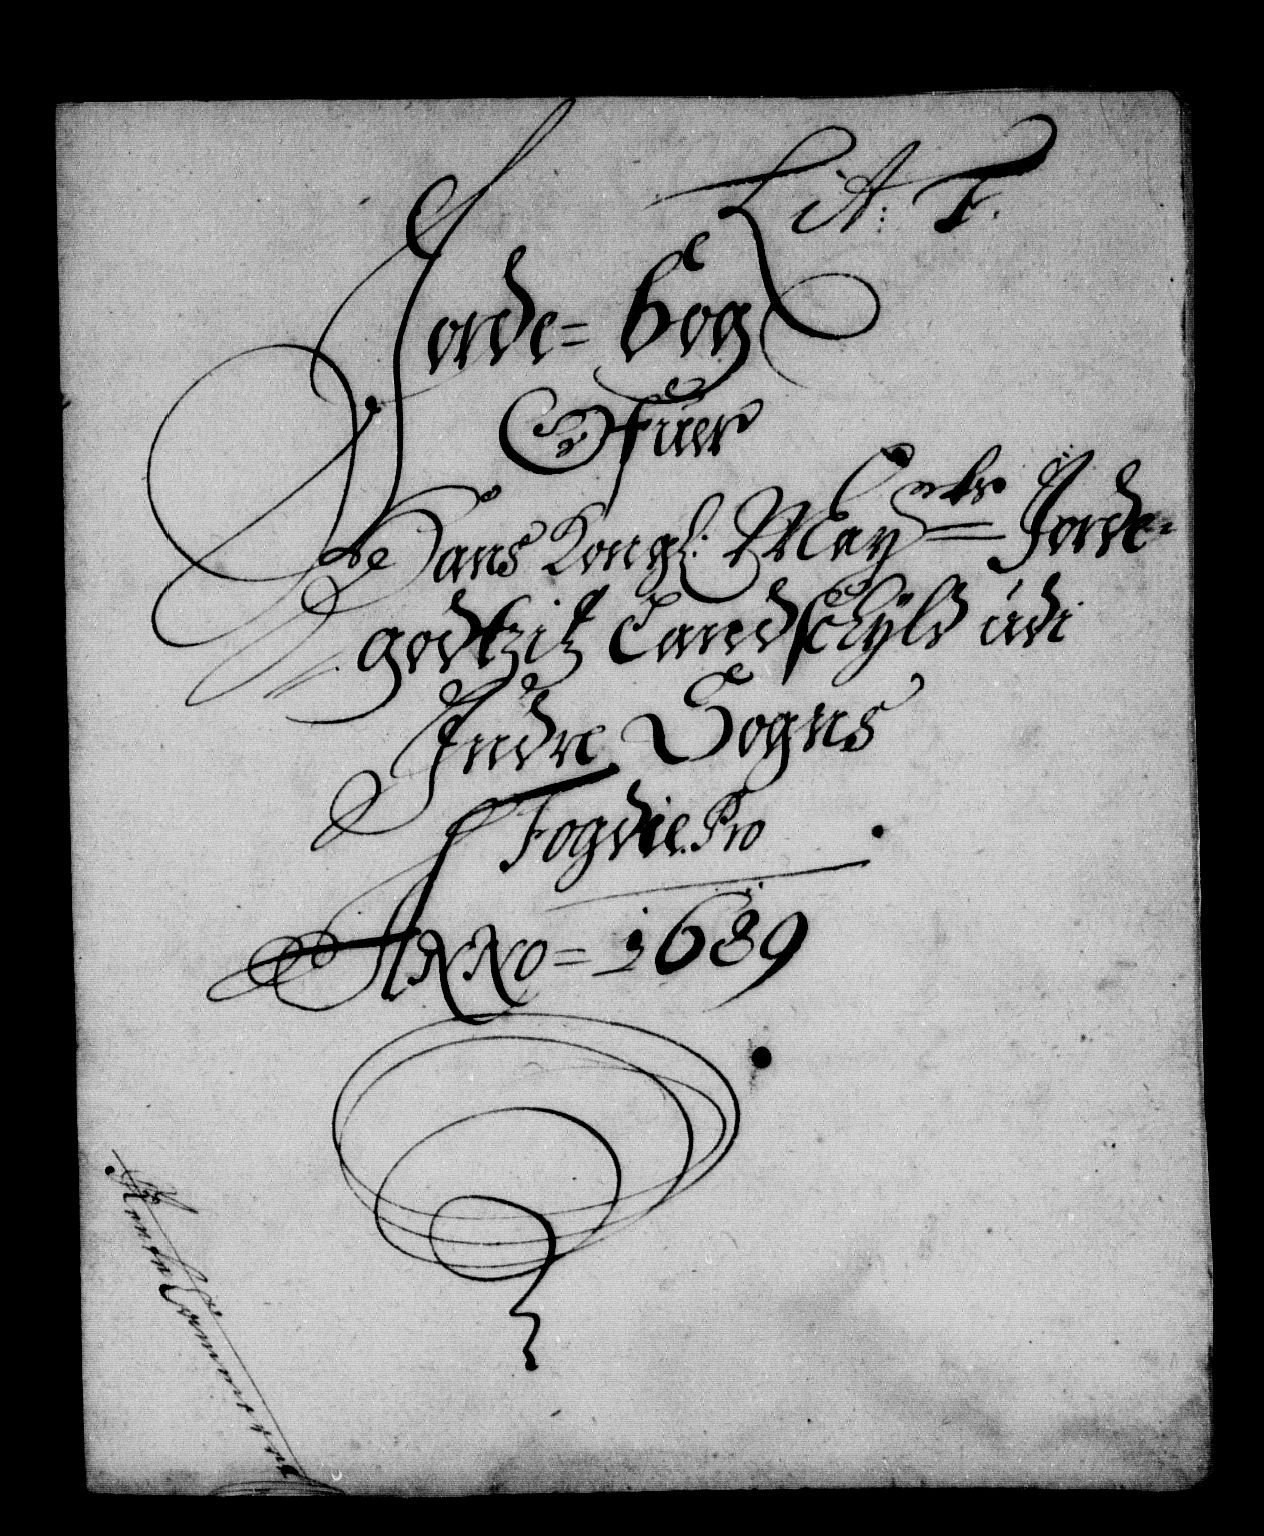 Lit: F.
Jorde= bog
Ofuer
Hans Kongl: May^tts Jorde=
godtziz Landschyld udi
Indre Sogns
Fogdie. Pro
Anno = 1689